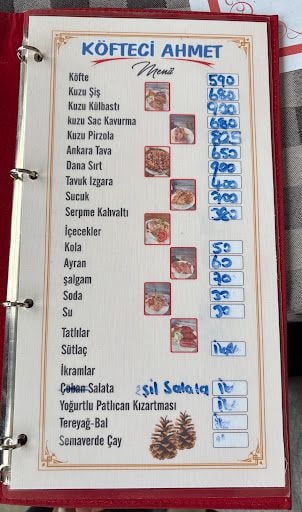 KÖFTECİ AHMET
Menü
Köfte 590
Kuzu Şiş 680
Kuzu Külbastı 900
kuzu Sac Kavurma 680
Kuzu Pirzola 825
Ankara Tava 650
Dana Sırt 900
Tavuk Izgara 400
Sucuk 700
Serpme Kahvaltı 380
İçecekler
Kola 50
Ayran 60
şalgam 70
Soda 30
Su 30
Tatlılar
Sütlaç
İkramlar
Çoban Salata şil Salata
Yoğurtlu Patlıcan Kızartması
Tereyağ-Bal
Semaverde Çay